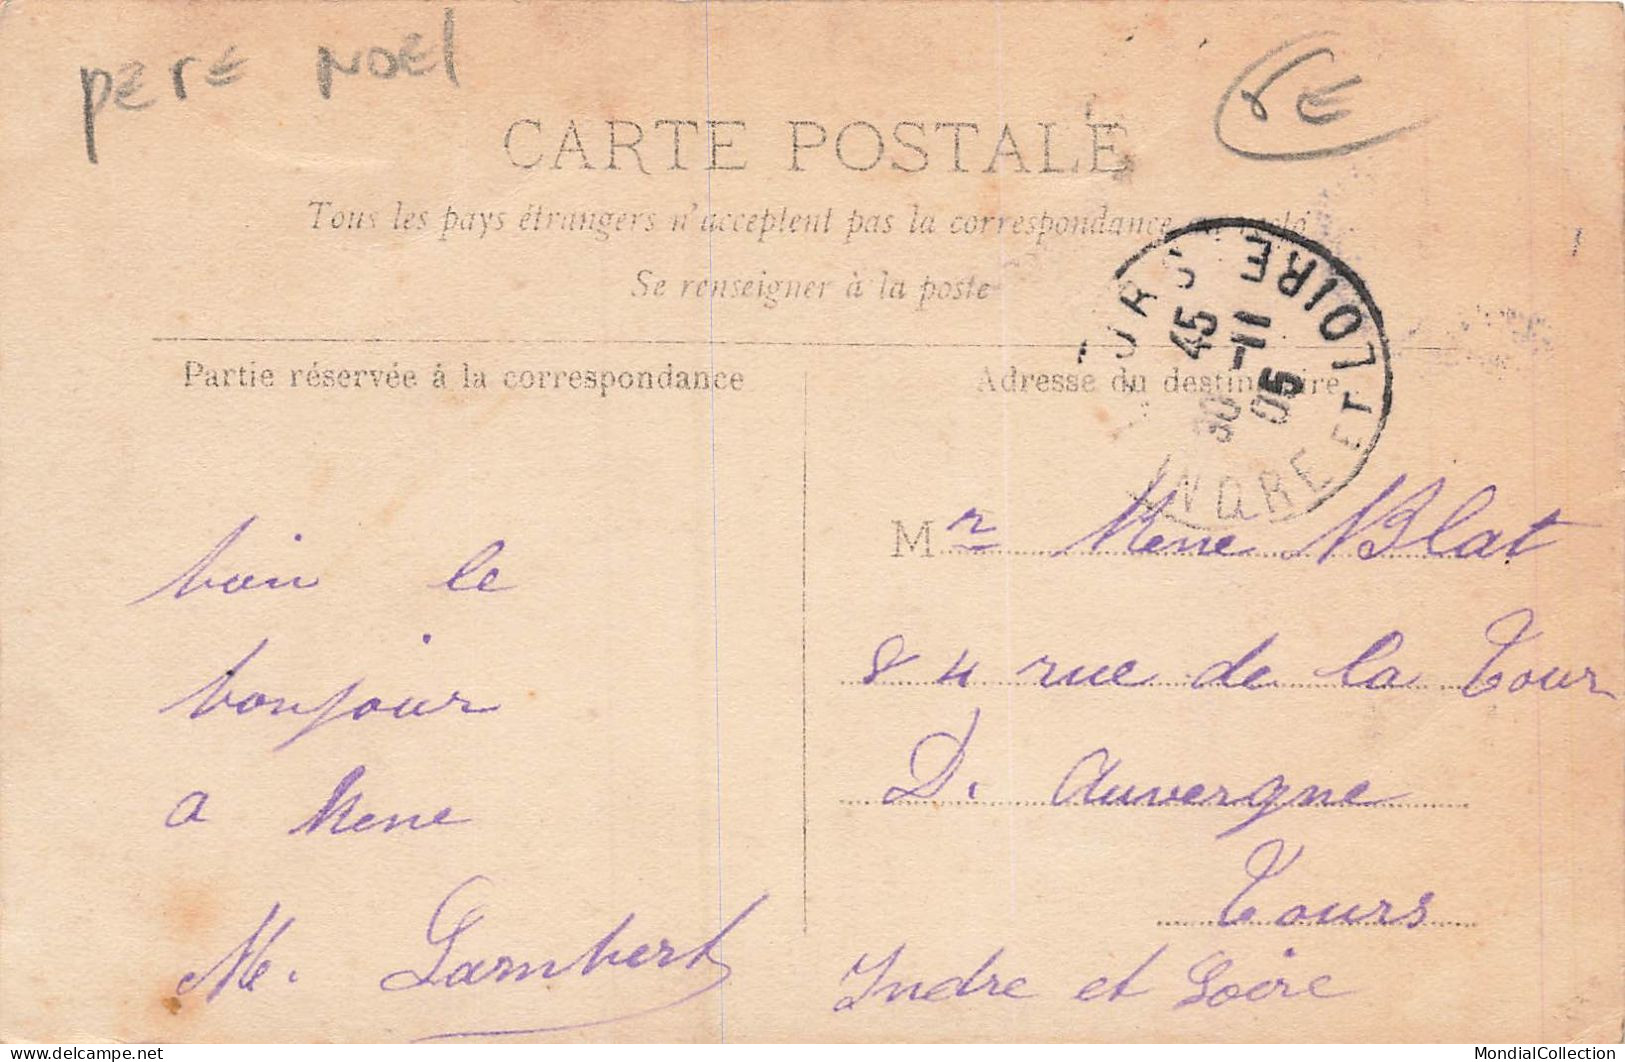 PERE NOEL
5E
CARTE POSTALE
Tous les pays étrangers n'acceptent pas la correspondance au verso
Se renseigner à la poste
TOURS
INDRE ET LOIRE
45
30 -11
05
Partie réservée à la correspondance
Adresse du destinataire
boin le
bonjour
a Rene
M. Lambert
Mr Rene Blat
84 rue de la Tour
D. Auvergne
Tours
Indre et Loire
delcampe.net
MondialCollection